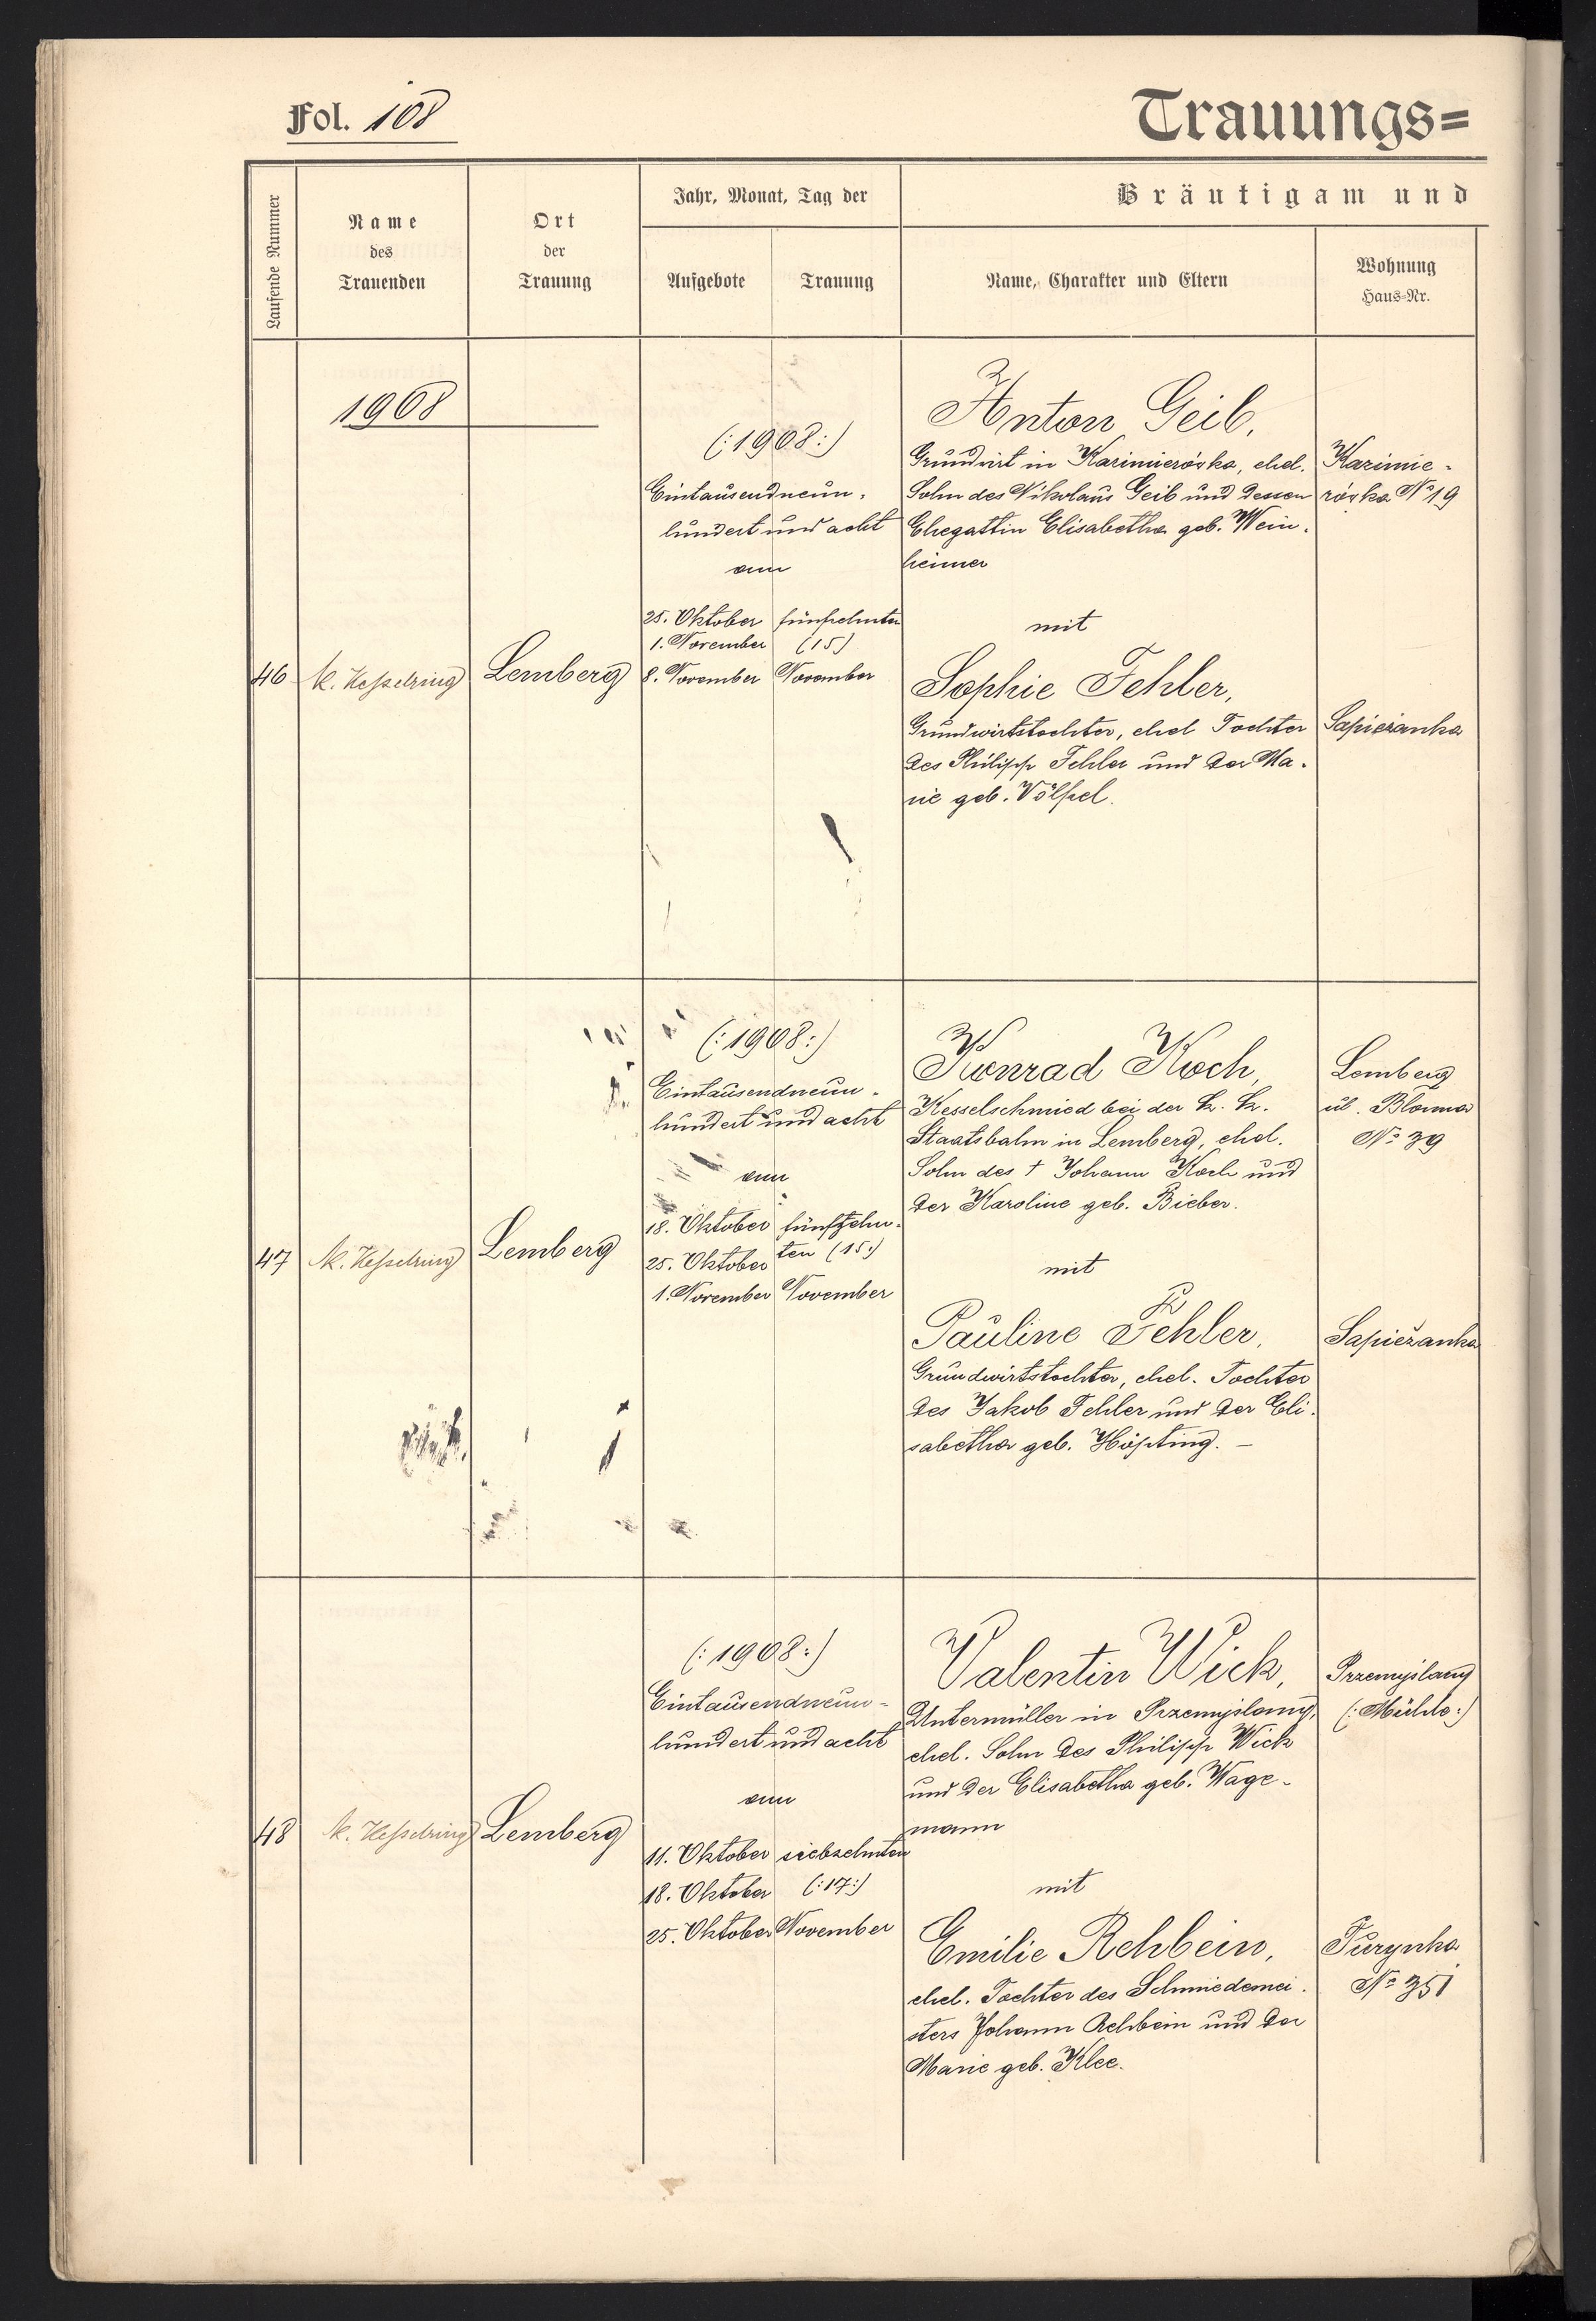 Fol. 108
Trauungs=
Laufende Nummer
Name
des
Trauenden
Ort
der
Trauung
Jahr, Monat, Tag der
Aufgebote
Trauung
Bräutigam und
Name, Charakter und Eltern
Wohnung
Haus-Nr.
1908
46
K. Kesselring
Lemberg
(:1908:)
Eintausendneun-
hundert und acht
am
25. Oktober
1. November
8. November
fünfzehnten
(15)
November
Anton Geib,
Grundwirt in Kazimierówka, ehel.
Sohn des Nikolaus Geib und dessen
Ehegattin Elisabetha geb. Wein-
heimer
mit
Sophie Fehler,
Grundwirtstochter, ehel Tochter
des Philipp Fehler und der Ma-
rie geb. Völpel.
Kazimie-
rówka No 19
Sapieżanka
47
K. Kesselring
Lemberg
(:1908:)
Eintausendneun-
hundert und acht
am
18. Oktober
25. Oktober
1. November
fünfzehn-
ten (15:)
November
Konrad Koch,
Kesselschmied bei der k. k.
Staatsbahn in Lemberg, ehel.
Sohn des † Johann Koch und
der Karoline geb. Bieber.
mit
Pauline Fehler,
Grundwirtstochter, ehel. Tochter
des Jakob Fehler und der Eli-
sabetha geb. Höpting. –
Lemberg
ul. Błonna
No 39
Sapieżanka
48
K. Kesselring
Lemberg
(:1908:)
Eintausendneun-
hundert und acht
am
11. Oktober
18. Oktober
25. Oktober
siebzehnten
(:17:)
November
Valentin Wick,
Untermüller in Przemyslany,
ehel. Sohn des Philipp Wick
und der Elisabetha geb. Wage-
mann
mit
Emilie Rehbein,
ehel. Tochter des Schmiedemei-
sters Johann Rehbein und der
Marie geb. Klee.
Przemyslany
(:Mühle:)
Turynka
No 351